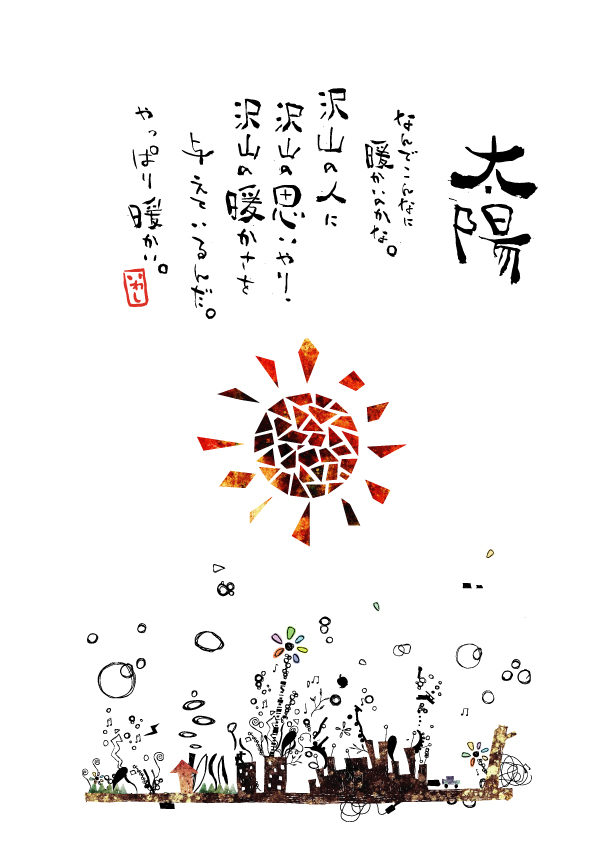 太陽
なんでこんなに
暖かいのかな。
沢山の人に
沢山の思いやり、
沢山の暖かさを
与えているんだ。
やっぱり暖かい。
いわし